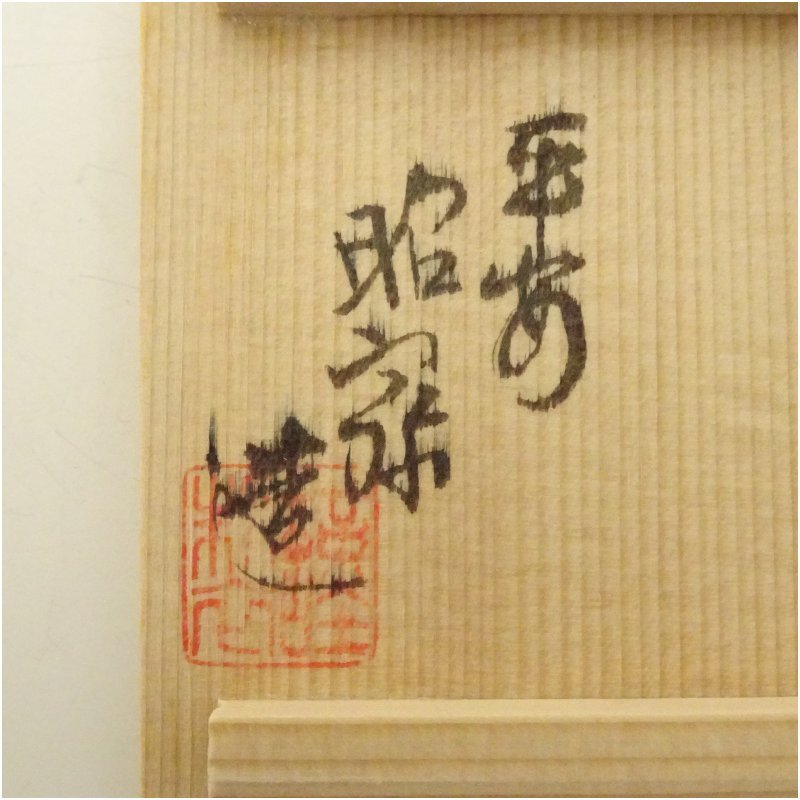 平安
昭宗
造